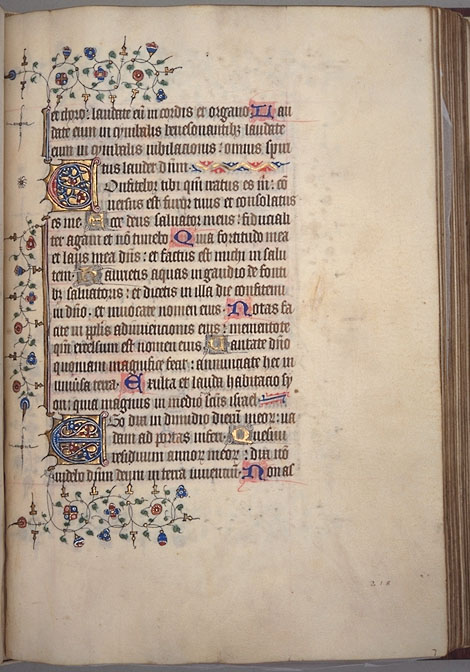 et choro: laudate eū in cordis et organo Lau
date eum in cymbalis benesonantibȝ laudate
eum in cymbalis iubilacionis: omnis spiri
tus laudet dūm.
Confitebor tibi qm̄ iratus es m̄: cō
uersus est furor tuus et consolatus
es me Ecce deus saluator meus: fiduciali
ter agam et nō timebo Quia fortitudo mea
et laus mea dn̄s: et factus est michi in salu
tem Haurietis aquas in gaudio de fonti
bȝ saluatoris: et dicetis in illa die confitemi
ni dn̄o: et inuocate nomen eius Notas fa
cite in pplis adinuenciones eius: mementote
qm̄ excelsum est nomen eius Cantate dn̄o
quoniam magnifice fecit: annunciate hec in
uniũsa terra Exulta et lauda habitacio sy
on: quia magnus in medio tui scūs israel
Ego dixi in dimidio dierū meoꝝ: ua
dam ad portas inferi Quesiui
residuum annoꝝ meoꝝ: dixi nō
uidebo dn̄m deum in terra uiuenciū Non as
218